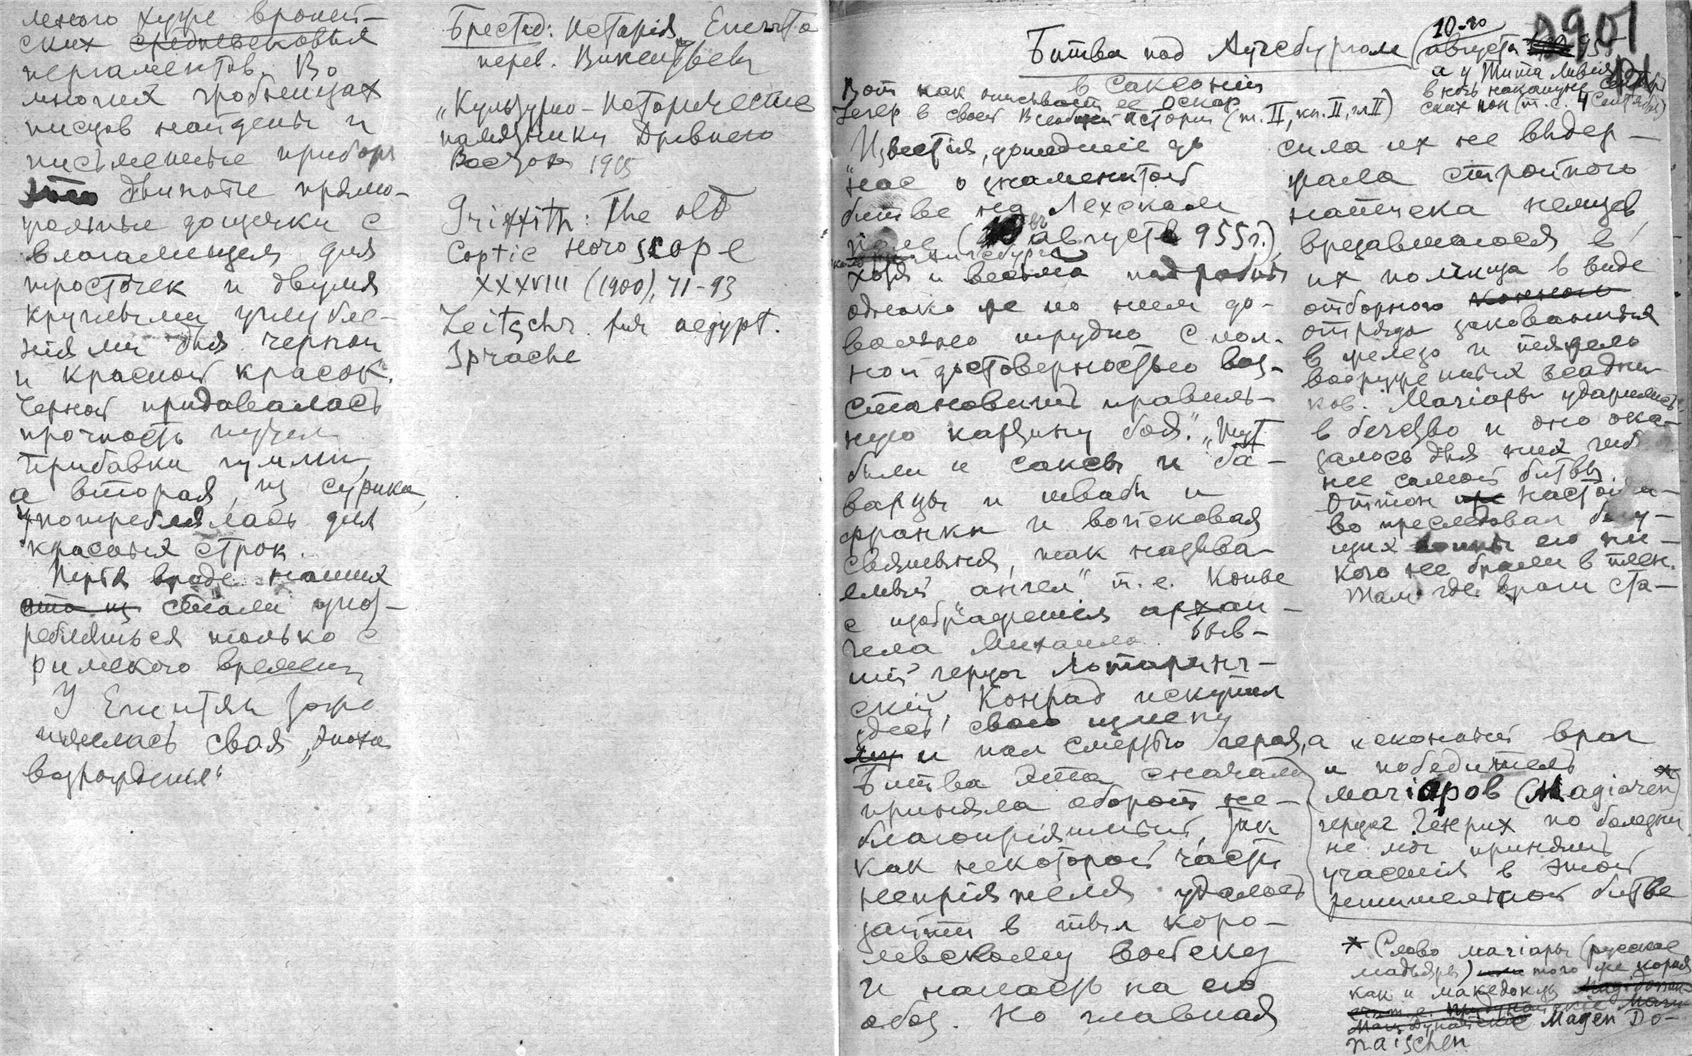 много хуже европей-
ских средневековых
пергаментов. Во
многих гробницах
писцов найдены и
письменные приборы
двинотые прямо-
угольные дощечки с
влагалищем для
тросточек и двумя
круглыми углубле-
ніями для черной
и красной красок.
Черной придавалась
прочность путем
прибавки гумми,
а вторая, из сурика,
употреблялась для
красных строк.
Перья вроде наших
стали упот-
ребляться только с
римского времени
У Египтян тоже
имелась своя „эпоха
возрожденія“
Брестед: Исторія Египта
перев. Викентьева
„Культурно-исторические
памятники Древнего
Востока 1915
Griffith: The old
Coptic horoscope
XXXVIII (1900), 71-93
Zeitschr. für aegypt.
Sprache
0901
Битва под Аугсбургом (10-го
августа 955
в Саксонии
а у Тита Ливия
в ночь накануне
Вот как описывает ее Оскар
Іегер в своей Всеобщей исторіи (т. II, кн. II, гл II)
"Извѣстія, дошедшіе до
нас о знаменитой
битве на Лехском
поле (10 августа 955 г.)
хотя и весьма подробны
однако же по ним до-
вольно трудно с пол-
ной достоверностью воз-
становить правиль-
ную картину боя." „Тут
были и саксы и ба-
варцы и швабы и
франки и войсковая
святыня, так называ-
емый „ангел“ т.е. копье
с изображеніем архан-
гела Михаила. Быв-
ший герцог Лотаринг-
ский Конрад искупил
здесь свою измену
и пал смертью героя, а исконный враг
и победитель
магіаров (Magiaren)*
герцог Генрих по болезни
не мог принять
участия в этой
решительной битве
Битва эта сначала
приняла оборот не-
благопріятный, так
как некоторой части
непріятеля удалось
зайти в тыл коро-
левскому войску
и напасть на его
обоз. Но главная
сила их не выдер-
жала стройного
натиска немцев,
врезавшагося в
их полчища в виде
отборного
отряда закованных
в железо и тяжело
вооруженных всадни-
ков. Магіары ударились
в бегство и оно ока-
залось для них гибель-
нее самой битвы.
Оттон настойчи-
во преследовал бегу-
щих его ни-
кого не брали в плен.
Там где враги ста-
* Слово магіары (русское
мадьяры) того же корня
как и македонцы
Magen Do-
naischen